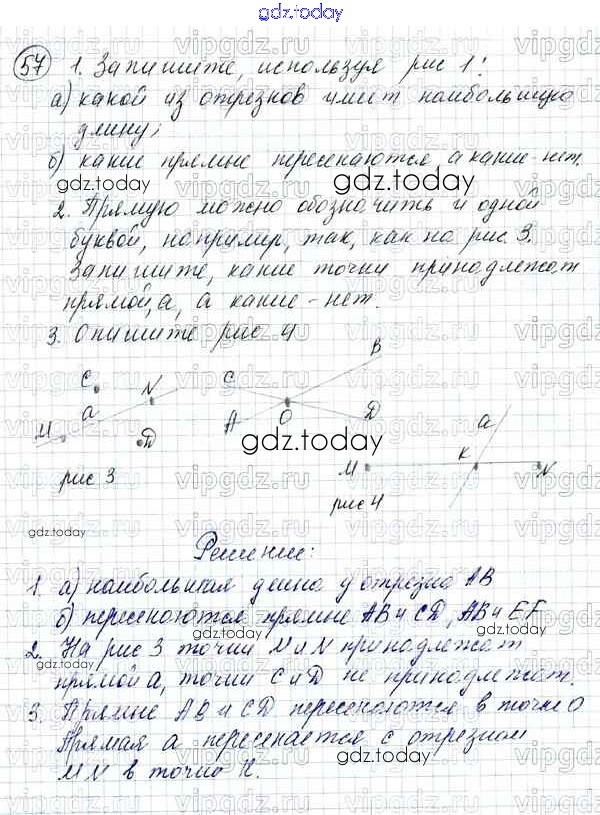 gdz.today
57 1. Запишите, используя рис 1:
а) какой из отрезков имеет наибольшую
длину;
б) какие прямые пересекаются, а какие-нет.
gdz.today gdz.today
2. Прямую можно обозначить и одной
буквой, например, так, как на рис. 3.
Запишите, какие точки принадлежат
прямой а, а какие-нет.
3. Опишите рис 4
C a N M D
рис 3
C B A O D
gdz.today
a M K N
рис 4
gdz.today
gdz.today
Решение:
1. а) наибольшая длина у отрезка AB
б) пересекаются прямые AB и CD, AB и EF
2. На рис 3 точки N и N принадлежат
gdz.today gdz.today
прямой а, точки C и D не принадлежат.
3. Прямые AB и CD пересекаются в точке O
Прямая а пересекается с отрезком
MN в точке K.
gdz.today